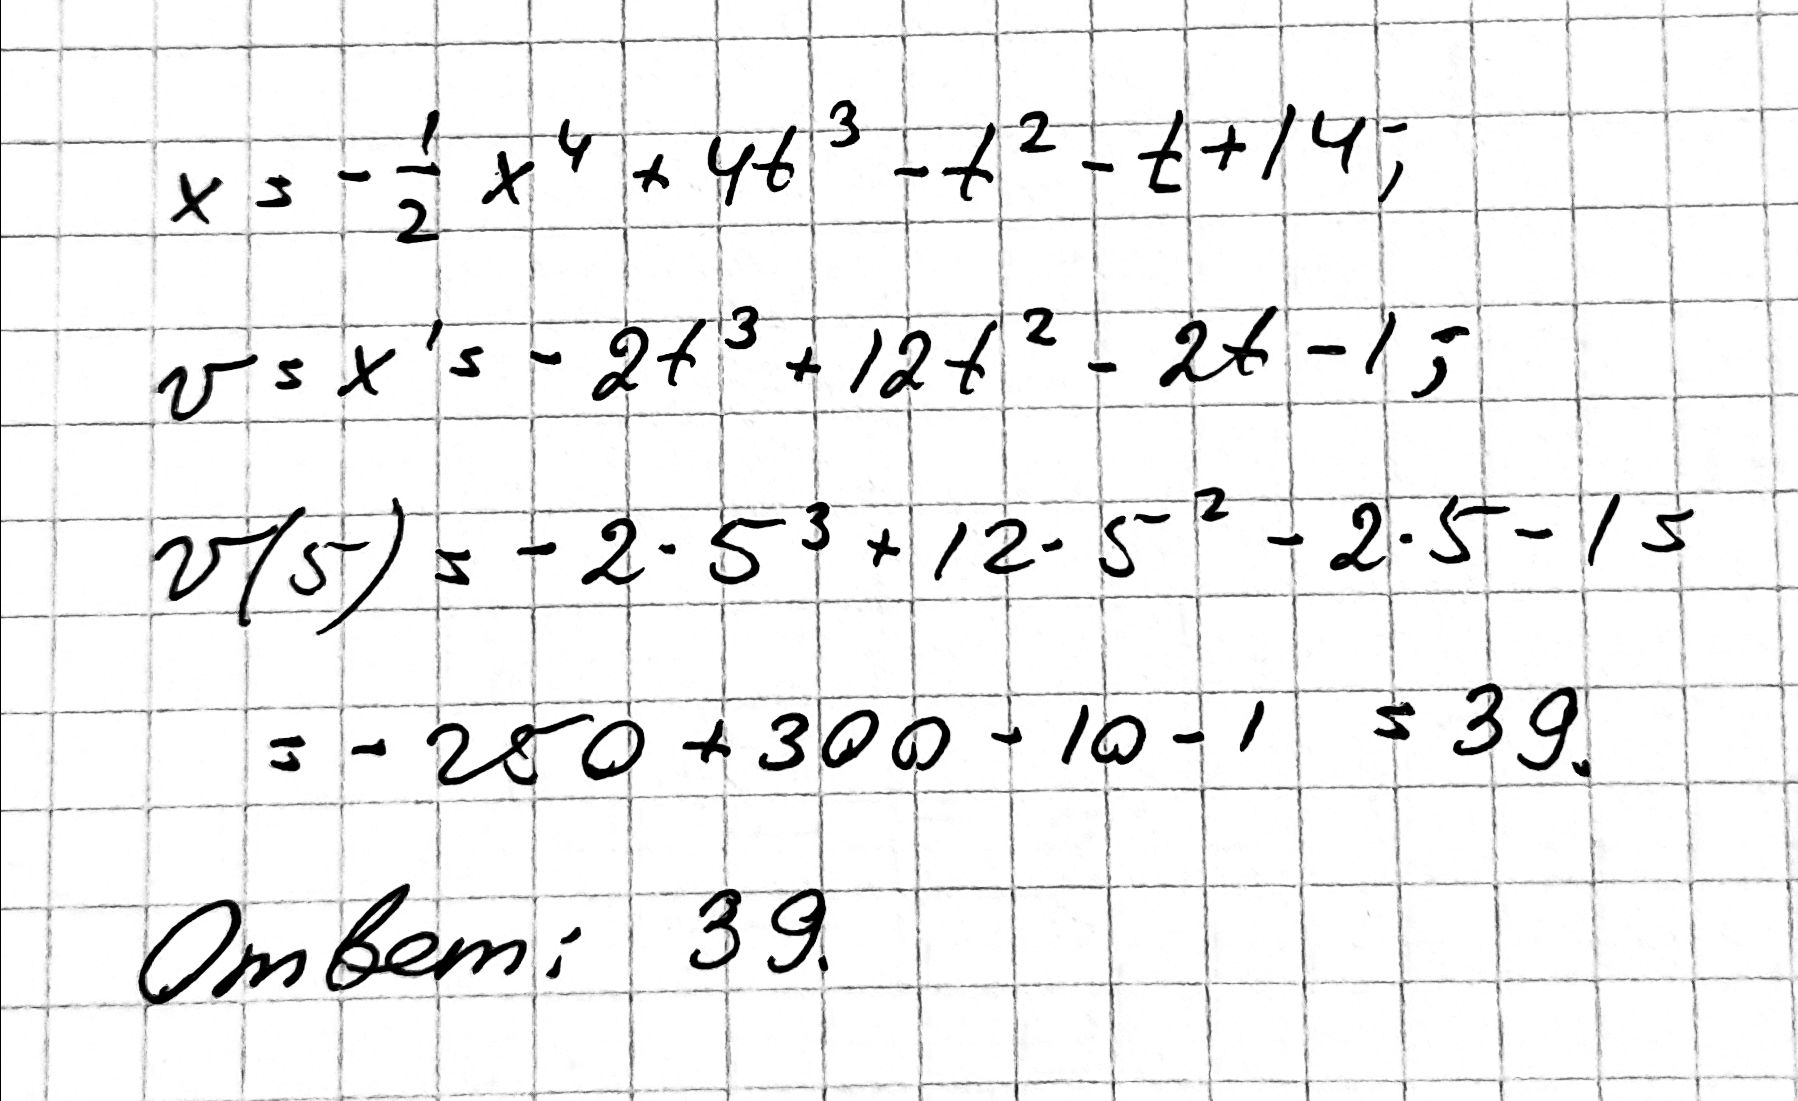 x = -1/2 x⁴ + 4t³ - t² - t + 14;
v = x' = -2t³ + 12t² - 2t - 1;
v(5) = -2·5³ + 12·5² - 2·5 - 1 =
= -250 + 300 - 10 - 1 = 39.
Ответ: 39.